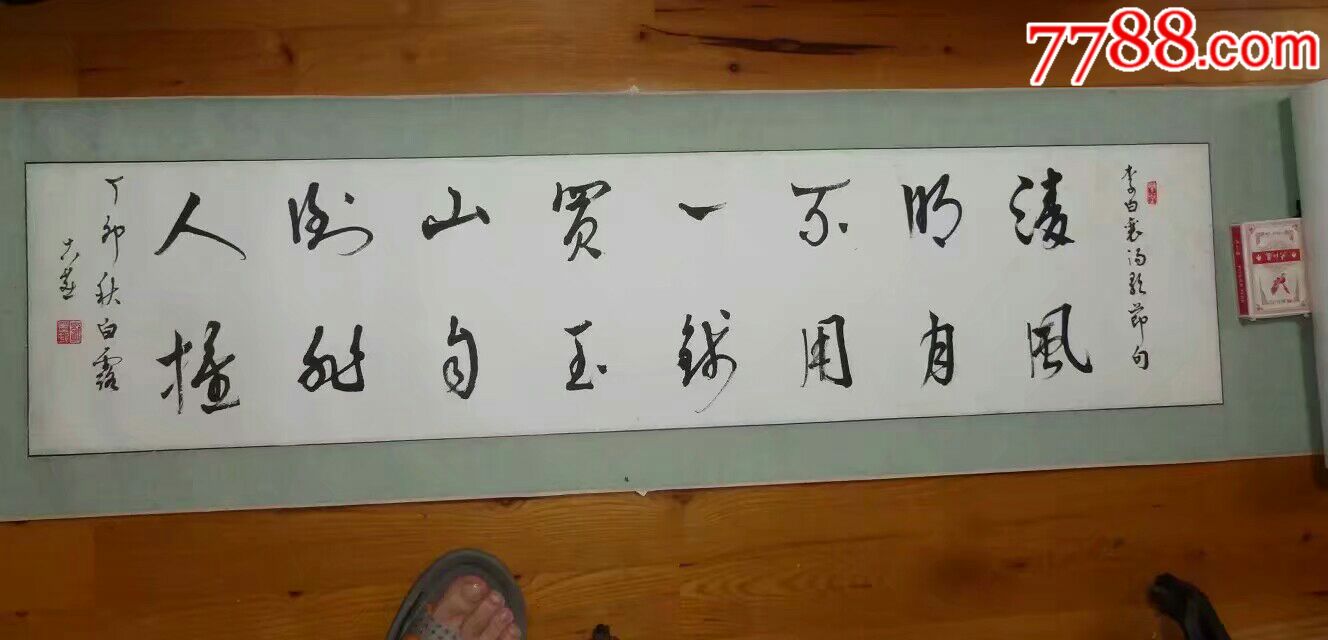 7788.com
李白襄陽歌節句
清風
朗月
不用
一錢
買玉
山自
倒非
人推
丁卯秋白露